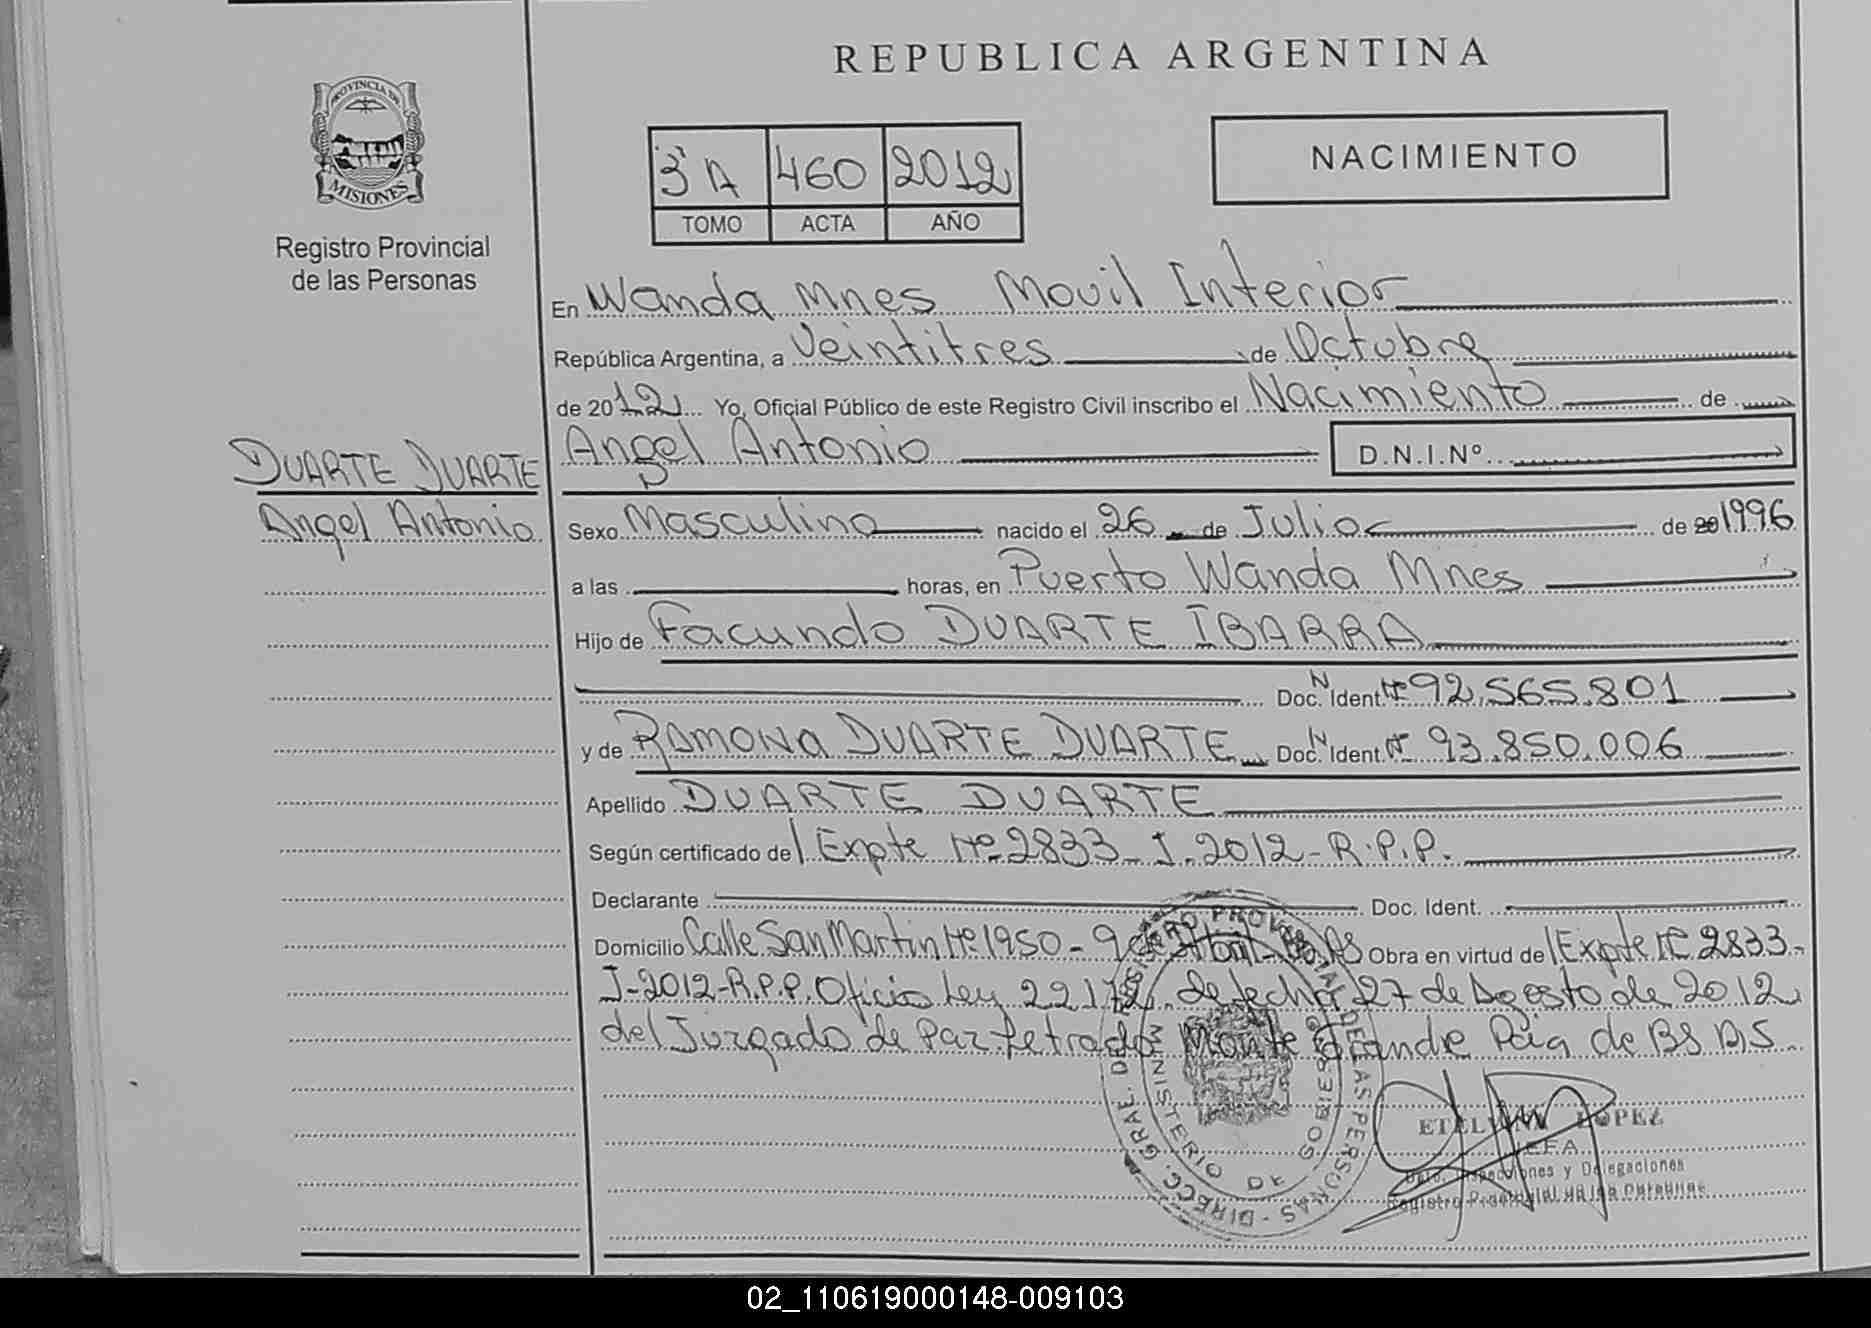 REPUBLICA ARGENTINA
PROVINCIA DE
MISIONES
Registro Provincial
de las Personas
NACIMIENTO
3ª A 460 2012
TOMO ACTA AÑO
En Wanda Mnes Movil Interior
República Argentina, a Veintitres de Octubre
de 2012 Yo, Oficial Público de este Registro Civil inscribo el Nacimiento de
DUARTE DUARTE
Angel Antonio
Angel Antonio D.N.I.Nº
Sexo Masculino nacido el 26 de Julio de 20 1996
a las horas, en Puerto Wanda Mnes
Hijo de Facundo DUARTE IBARRA
Doc. N Ident. Nº 92.565.801
y de Ramona DUARTE DUARTE Doc. N Ident. Nº 93.850.006
Apellido DUARTE DUARTE
Según certificado de Expte Nº 2833-J-2012-R.P.P.
Declarante Doc. Ident.
Domicilio Calle San Martin Nº 1950 - 9 de Abril - Bs As Obra en virtud de Expte Nº 2833-
J-2012-R.P.P. Oficio Ley 22172 de fecha 27 de Agosto de 2012
del Juzgado de Paz Letrado Monte Grande Pcia de BS AS
DIRECC. GRAL. DEL REGISTRO PROVINCIAL DE LAS PERSONAS
MINISTERIO DE GOBIERNO
LOPEZ
JEFA
Dpto. Inspecciones y Delegaciones
Registro Provincial de las Personas
02_110619000148-009103